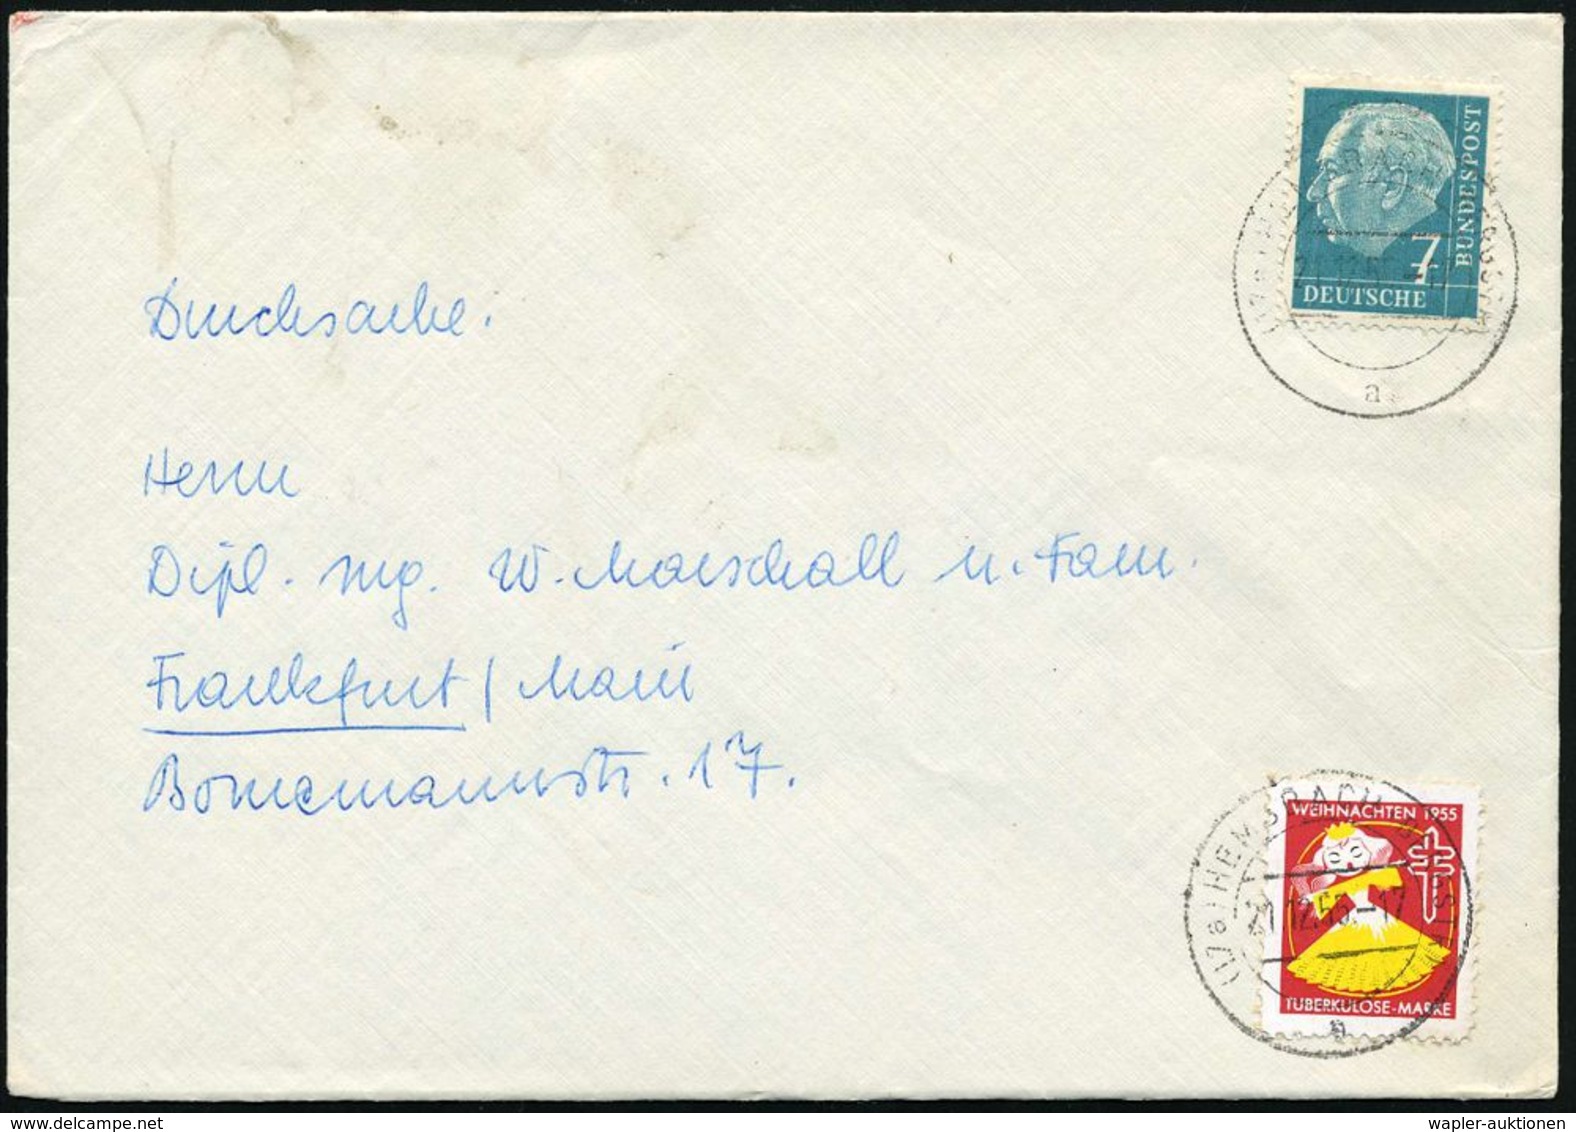 7
BUNDESPOST
DEUTSCHE
a
Drucksache.
Herrn
Dipl. Ing. W. Marschall u. Fam.
Frankfurt / Main
Bornemannstr. 17.
WEIHNACHTEN 1955
(17a) HEMSBACH
21.12.55.-17
TUBERKULOSE-MARKE
wapler-auktionen